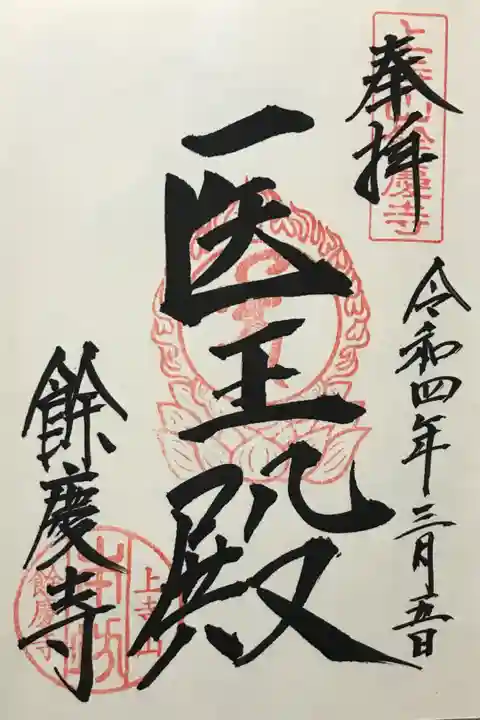 奉拝
上寺山餘慶寺
令和四年三月五日
医王殿
餘慶寺
上寺山
本坊
餘慶寺